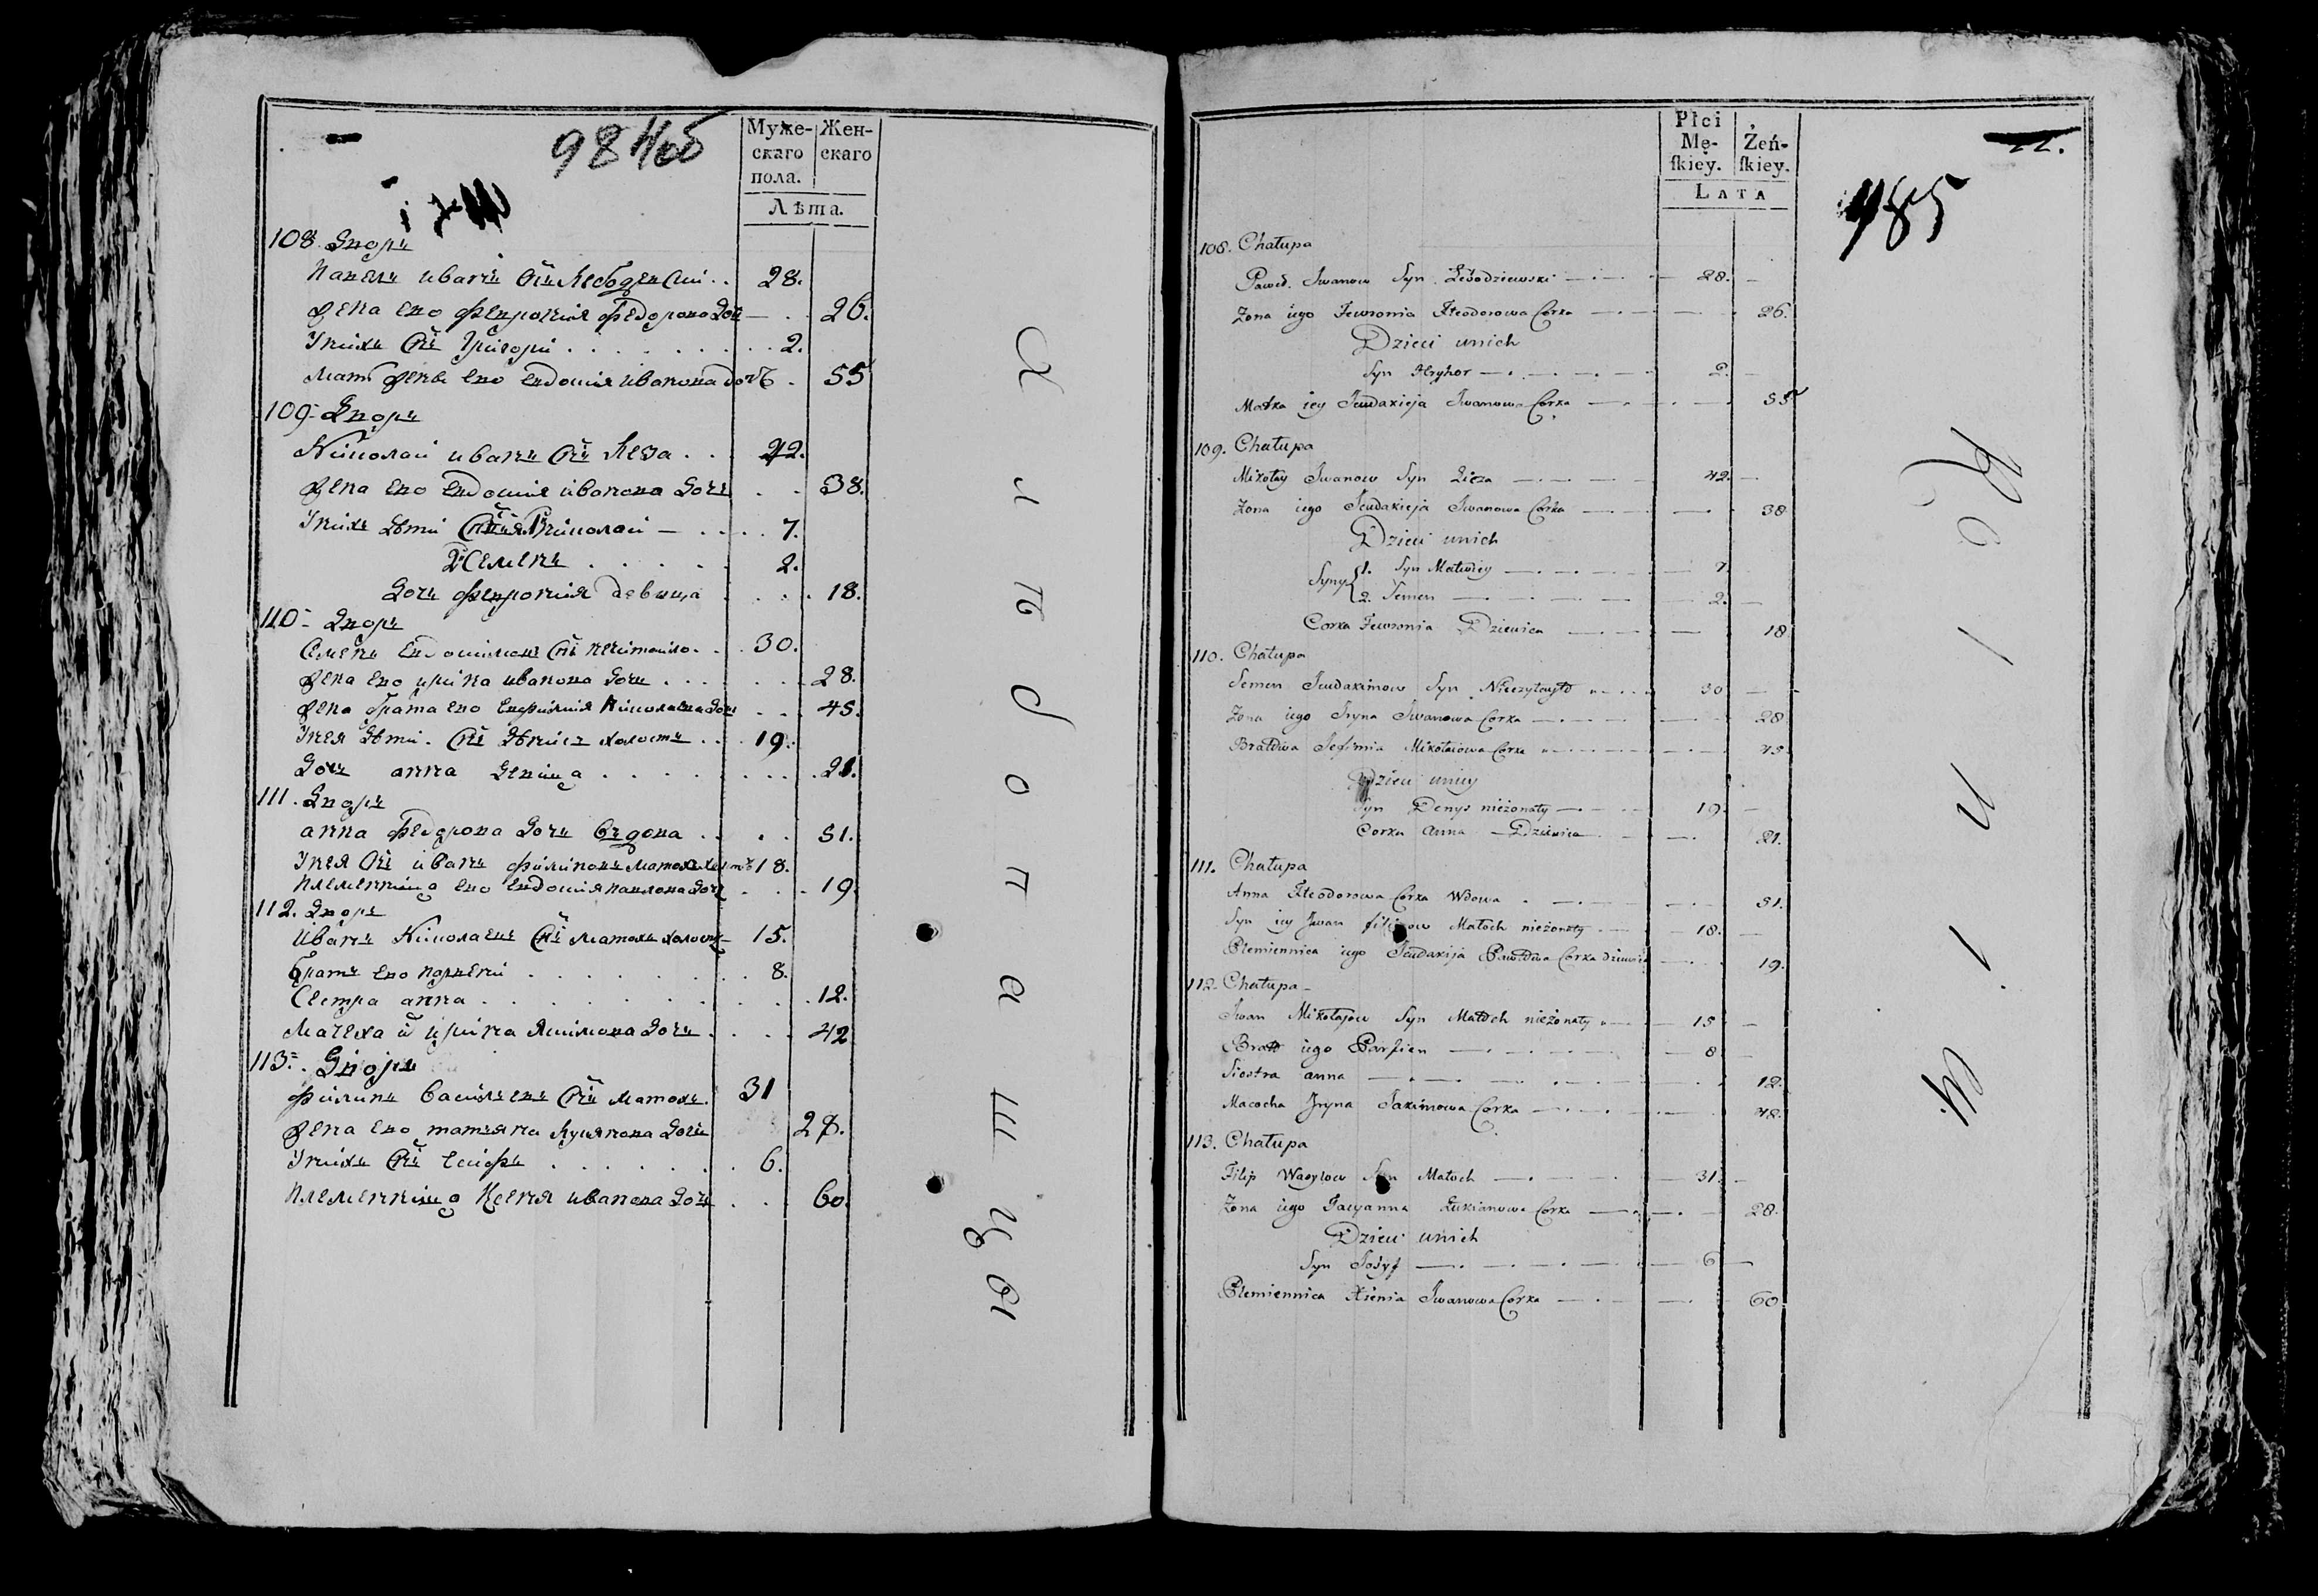 98 Ноб
Муже-
скаго
пола.
Жен-
скаго
Лѣта.
108 Дворъ
Павелъ Иванъ Снъ Лебодевски . . 28.
Жена ево Февронія Федорова Дочь — . 26.
Унихъ Снъ Григори . . . . . . . . . 2.
Мать жены ево Евдокія Иванова дочь . 55
109 Дворъ
Николай Иванъ Снъ Леза . . . 42.
Жена ево Евдокія Иванова Дочь . . 38.
Унихъ дѣти Николай — . . . . 7.
2 Семенъ . . . . . 2.
Дочь Февронія девица . . . 18.
110 Дворъ
Семенъ Евдокимовъ Снъ . . 30.
Жена ево Ирина Иванова Дочь . . . . . . 28.
Жена брата ево Евфимія Николаева Дочь . . . 45.
Унея дѣти. Снъ Дѣнисъ холостъ . . . 19.
Дочь анна девица . . . . . . . . . 21.
111. Дворъ
анна Федорова Дочь вдова . . . . 51.
Унея Снъ иванъ Филиповъ Матохъ 18.
Племенница ево Евдокія Павлова Дочь . . . 19.
112. Дворъ
Иванъ Николаевъ Снъ Матохъ холостъ 15.
Братъ ево Парѳени . . . . . . . . 8.
Сестра анна . . . . . . . . . . 12.
Мачеха и Ирина Якимова Дочь . . . . 42
113. Дворъ
Филипъ Васильевъ Снъ Матохъ. 31
Жена ево татьяна Лукянова Дочь 28.
Унихъ Снъ Есифъ . . . . . . . 6.
Племенница Ксения Иванова Дочь . . . 60.
Хиторопашцы
Płci
Mę-
ſkiey.
Żeń-
ſkiey.
LATA
485
108. Chałupa
Paweł Iwanow Syn Lebodziewski — 28. —
Zona iego Fewronia Fteodorowa Corka — 26.
Dzieci unich
Syn Hryhor — 2. —
Matka iey Jeudakieja Iwanowa Corka — 55
109. Chałupa
Mikołay Iwanow Syn Lieza — 42. —
Zona iego Jeudakieja Iwanowa Corka — 38
Dzieci unich
Syny 1. Syn Matwiey — 7.
2. Semen — 2. —
Corka Fewronia Dziewica — 18
110. Chałupa
Semen Jeudakimow Syn — 30 —
Zona iego Iryna Iwanowa Corka — 28
Bratowa Jefimia Mikołaiowa Corka — 45
Dzieci uniey
Syn Denys nieżonaty — 19. —
Corka Anna — Dziewica — 21.
111. Chałupa
Anna Fteodorowa Corka Wdowa — 51.
Syn iey Iwan Filipow Matoch nieżonaty — 18. —
Plemiennica iego Jeudakija Pawłowa Corka dziewica — 19.
112. Chałupa
Iwan Mikołajow Syn Matoch nieżonaty — 15 —
Brat iego Parfien — 8 —
Siostra anna — 12.
Macocha Iryna Jakimowa Corka — 42.
113. Chałupa
Filip Wasylow Syn Matoch — 31. —
Zona iego Tacyanna Łukianowa Corka — 28.
Dzieci unich
Syn Josyf — 6 —
Plemiennica Xienia Iwanowa Corka — 60.